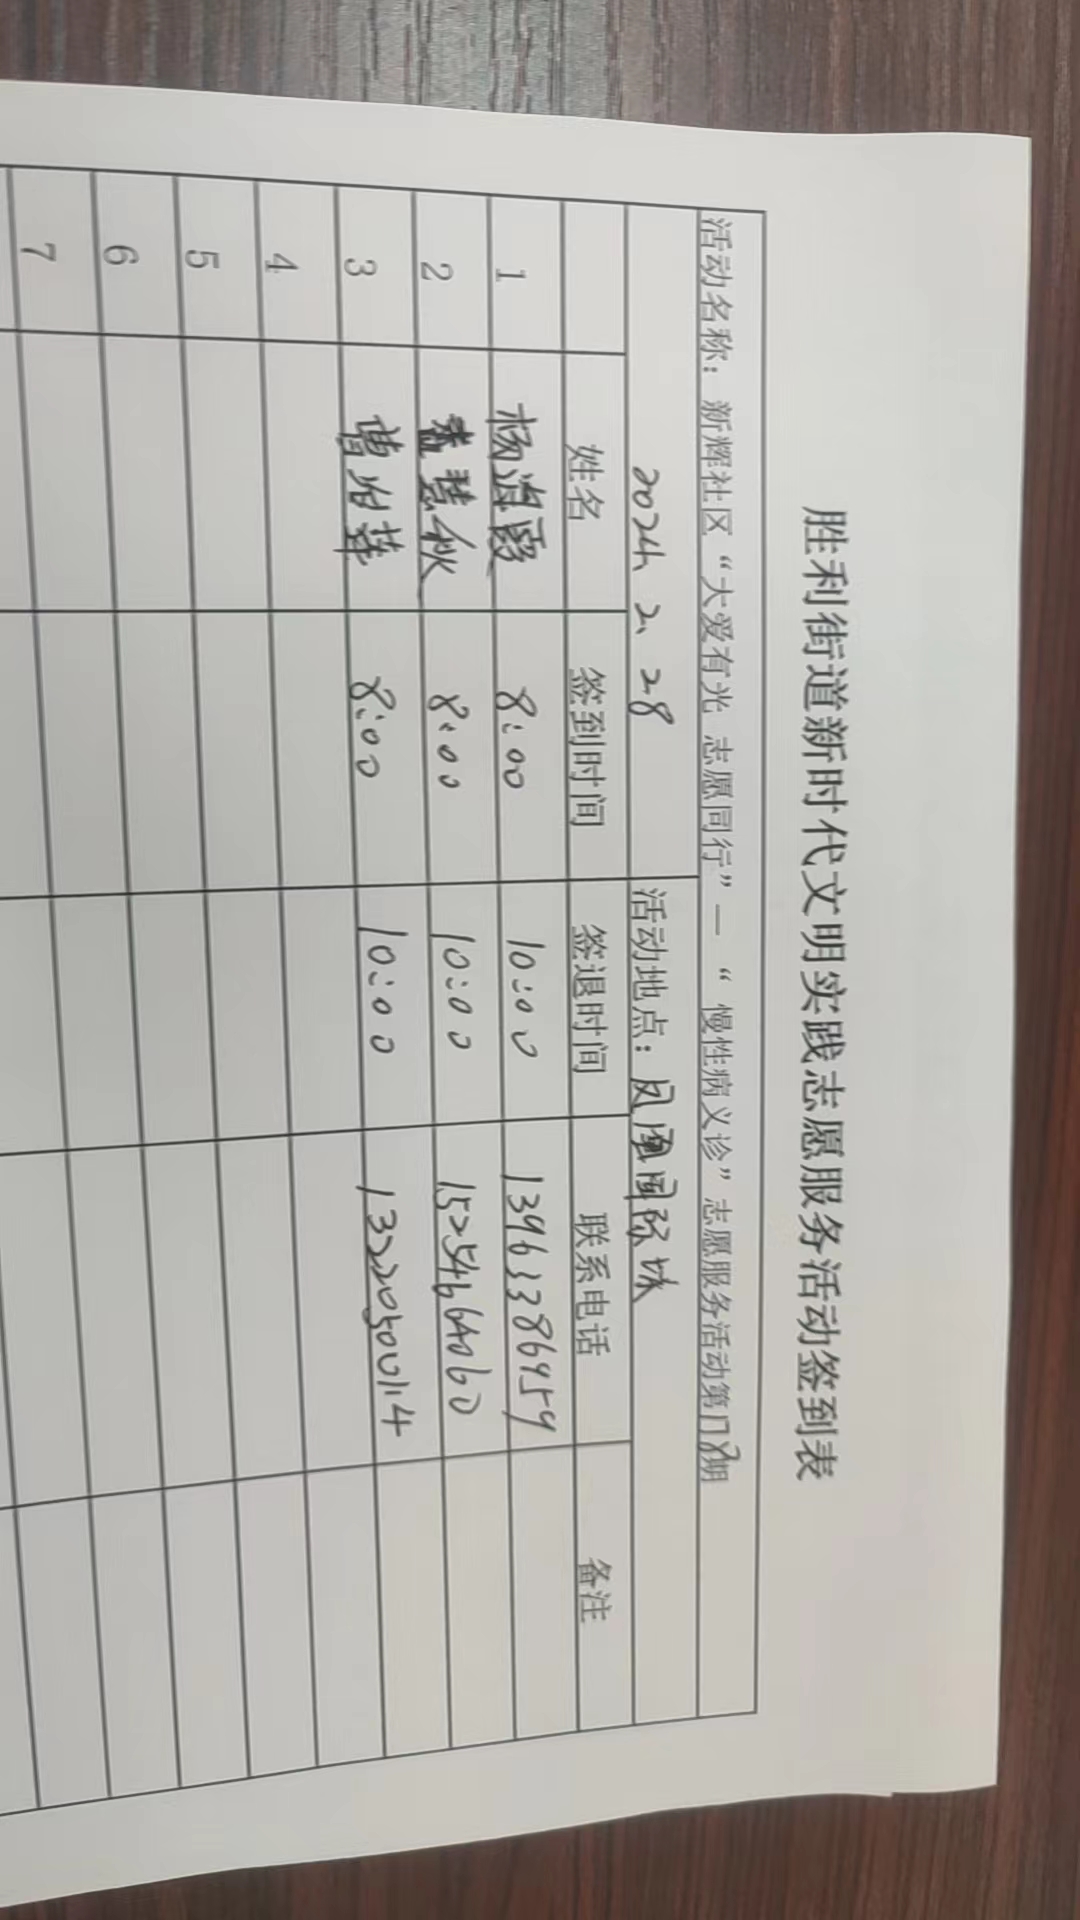 胜利街道新时代文明实践志愿服务活动签到表
活动名称：新辉社区“大爱有光 志愿同行”—“慢性病义诊”志愿服务活动第 期
2024、2、28 活动地点：凤凰国际城
姓名 签到时间 签退时间 联系电话 备注
1 杨海霞 8:00 10:00 13963386459
2 慧秋 8:00 10:00 15254664060
3 曹怡萍 8:00 10:00
4
5
6
7